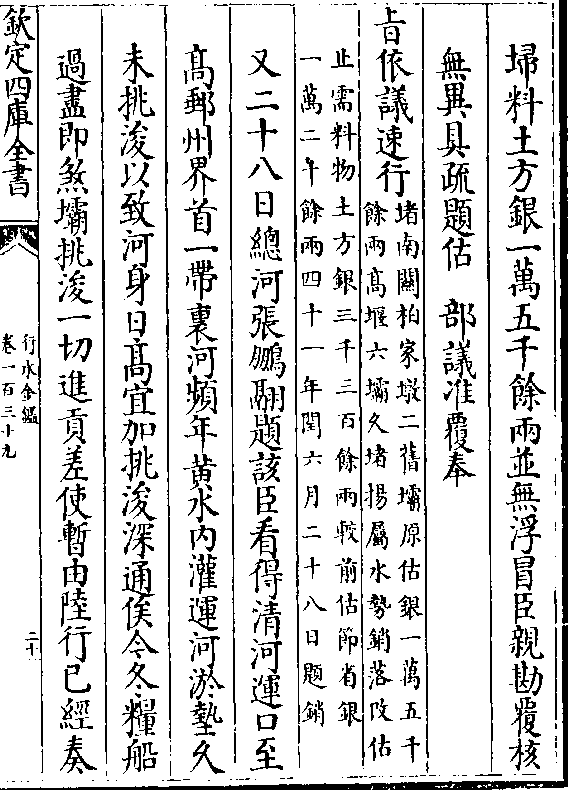 埽料土方銀一萬五千餘兩並無浮冒臣親勘覆核
無異具疏題估　部議准覆奉
㫖依議速行堵南關柏家墩二舊壩原估銀一萬五千
餘兩髙堰六壩久堵揚屬水勢銷落改估
止需料物土方銀三千三百餘兩較前估節省銀
一萬二千餘兩四十一年閏六月二十八日題銷
又二十八日總河張鵬翮題該臣看得清河運口至
髙郵州界首一帶裏河頻年黄水内灌運河淤墊久
未挑浚以致河身日髙宜加挑浚深通俟今冬糧船
過盡即煞壩挑浚一切進貢差使暫由陸行已經奏
欽定四庫全書
行水金鑑
卷一百三十九
二十